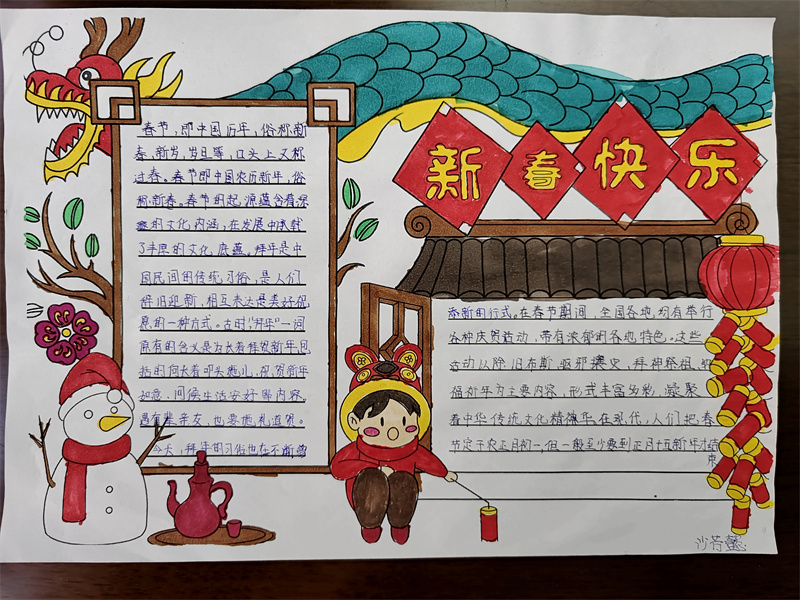 新春快乐
春节，即中国历年，俗称新
春、新岁、岁旦等，口头上又称
过年。春节即中国农历新年，俗
称新春。春节的起源蕴含着深
的文化内涵，在发展中承载
了丰厚的文化底蕴。拜年是中
国民间的传统习俗，是人们
辞旧迎新、相互表达美好祝
愿的一种方式。古时"拜年"一词
原有的含义是为长者拜贺新年，包
括向长者叩头施礼、祝贺新年
如意、问候生活安好等内容。
遇有辈亲友，也要施礼道贺。
今天，拜年的习俗也在不断增
添新的形式。在春节期间，全国各地均有举行
各种庆贺活动，带有浓郁的各地特色。这些
活动以除旧布新、驱邪、拜神祭祖、
福祈年为主要内容，形式丰富多彩，凝聚
着中华传统文化精华。在现代，人们把春
节定于农正月初一，但一般至少要到正月十五新年才结
束